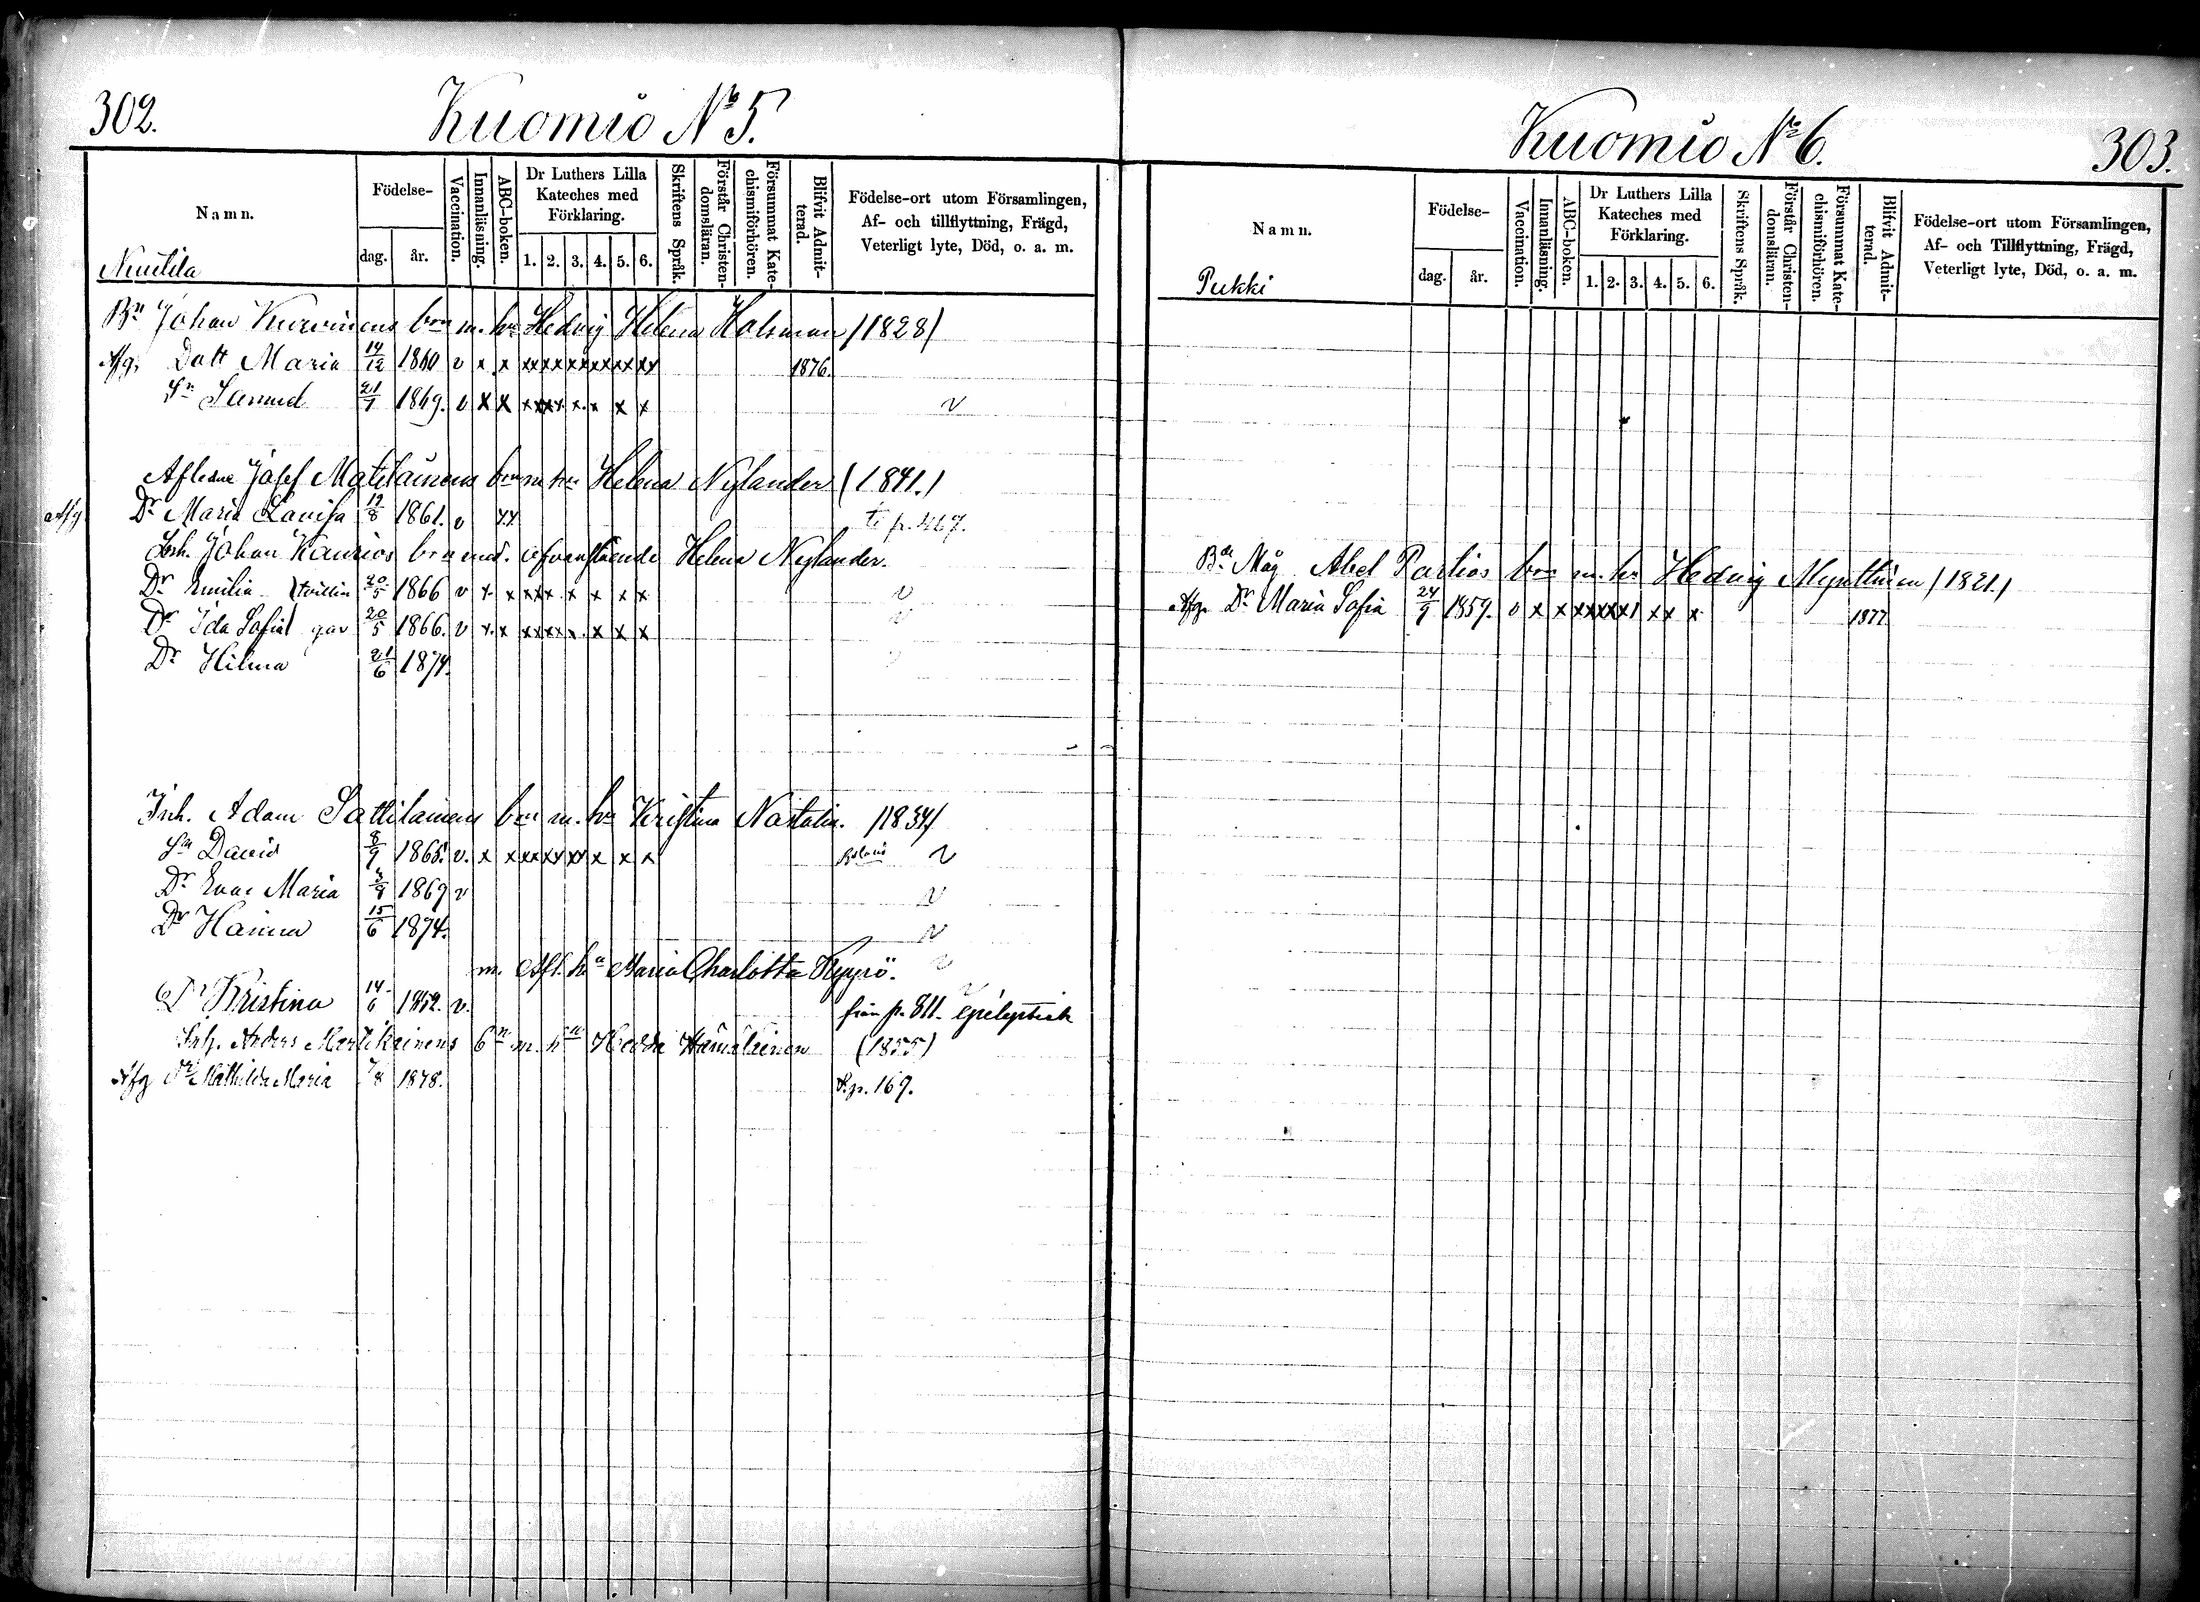 302.
Kuomio No 5.
Namn.
Födelse-
dag.
år.
Vaccination.
Innanläsning.
ABC-boken.
Dr Luthers Lilla
Kateches med
Förklaring.
1. 2. 3. 4. 5. 6.
Skriftens Språk.
Förstår Christen-
domsläran.
Försummat Kate-
chismiförhören.
Blifvit Admit-
terad.
Födelse-ort utom Församlingen,
Af- och tillflyttning, Frägd,
Veterligt lyte, Död, o. a. m.
Nuutila
Bn Johan Kurvinens brn m. hu Hedvig Helena Holsman /1828/
Afg. Dott Maria 14/12 1860 v x x xx xx xx xx xx xx 1876.
Sn Samuel 21/9 1869. v x x xx xx x x x x v
Aflidne Josef Matilainens brn m hu Helena Nylander (1841.)
Afg. Dr Maria Lovisa 19/8 1861. v xx ti p. 467.
Inh. Johan Kaurios brn med. ofvanstående Helena Nylander.
Dr Emilia tvillin 20/5 1866 v x x xx x x x x x v
Dr Ida Sofia gar 20/5 1866. v x x xx xx x x x x v
Dr Hilma 21/6 1874. v
Inh. Adam Sattilainens brn m. hu Kristina Nastalin. /1834/
Sn David 8/9 1865. v. x x xx xx xx x x x v
Dr Eva Maria 3/8 1869 v v
Dr Hanna 15/6 1874. v
m. Afl. hu Maria Charlotta Kyyrö. v
Dr Kristina 14/6 1852. v. från p. 811. epileptisk
Inh. Anders Martikainens bn m. hu Hedda Hämäläinen (1855)
Afg Dr Mathilda Maria 7/8 1878. R.p. 169.
303.
Kuomio No 6.
Namn.
Födelse-
dag.
år.
Vaccination.
Innanläsning.
ABC-boken.
Dr Luthers Lilla
Kateches med
Förklaring.
1. 2. 3. 4. 5. 6.
Skriftens Språk.
Förstår Christen-
domsläran.
Försummat Kate-
chismiförhören.
Blifvit Admit-
terad.
Födelse-ort utom Församlingen,
Af- och Tillflyttning, Frägd,
Veterligt lyte, Död, o. a. m.
Pukki
Bds Måg Abel Partios brn m. hu Hedvig Mynttinen /1821./
Afg. Dr Maria Sofia 24/9 1859. v x x xx xx x xx x 1877